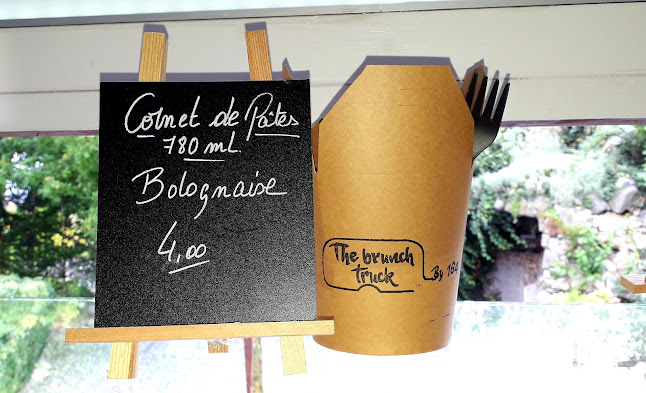 Cornet de Pâtes
780 mL
Bolognaise
4,00
The brunch
truck
By